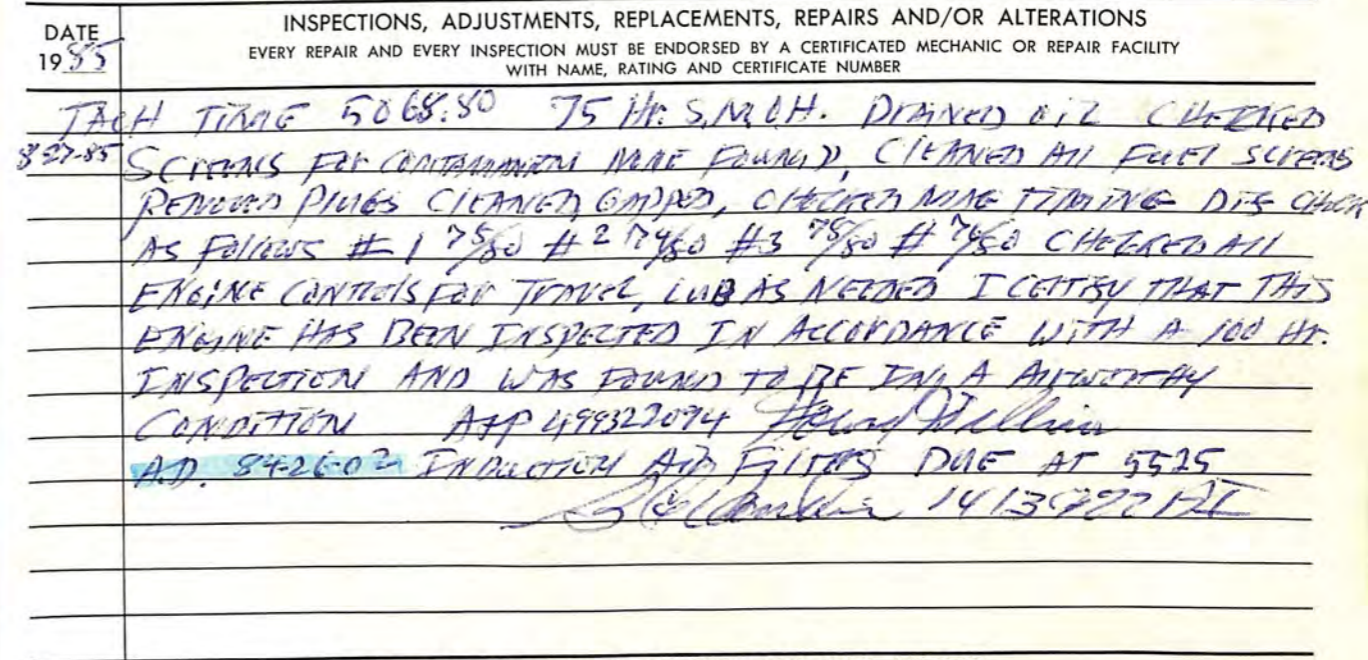 DATE
1985
INSPECTIONS, ADJUSTMENTS, REPLACEMENTS, REPAIRS AND/OR ALTERATIONS
EVERY REPAIR AND EVERY INSPECTION MUST BE ENDORSED BY A CERTIFICATED MECHANIC OR REPAIR FACILITY
WITH NAME, RATING AND CERTIFICATE NUMBER
TACH TIME 5068.80 75 Hr. S.M.O.H. DRAINED OIL CHECKED
8-27-85 SCREENS FOR CONTAMINANTS NONE FOUND, CLEANED All FUEL SCREENS
REMOVED PLUGS CLEANED, GAPPED, CHECKED MAG TIMING DIF CHECK
AS FOLLOWS # 1 75/80 # 2 74/80 #3 75/80 # 76/80 CHECKED All
ENGINE CONTROLS FOR TRAVEL, LUB AS NEEDED I CERTIFY THAT THIS
ENGINE HAS BEEN INSPECTED IN ACCORDANCE WITH A 100 Hr.
INSPECTION AND WAS FOUND TO BE IN A AIRWORTHY
CONDITION A+P 499322094
A.D. 84-26-02 INDUCTION AIR FILTERS DUE AT 5525
1413722 AI